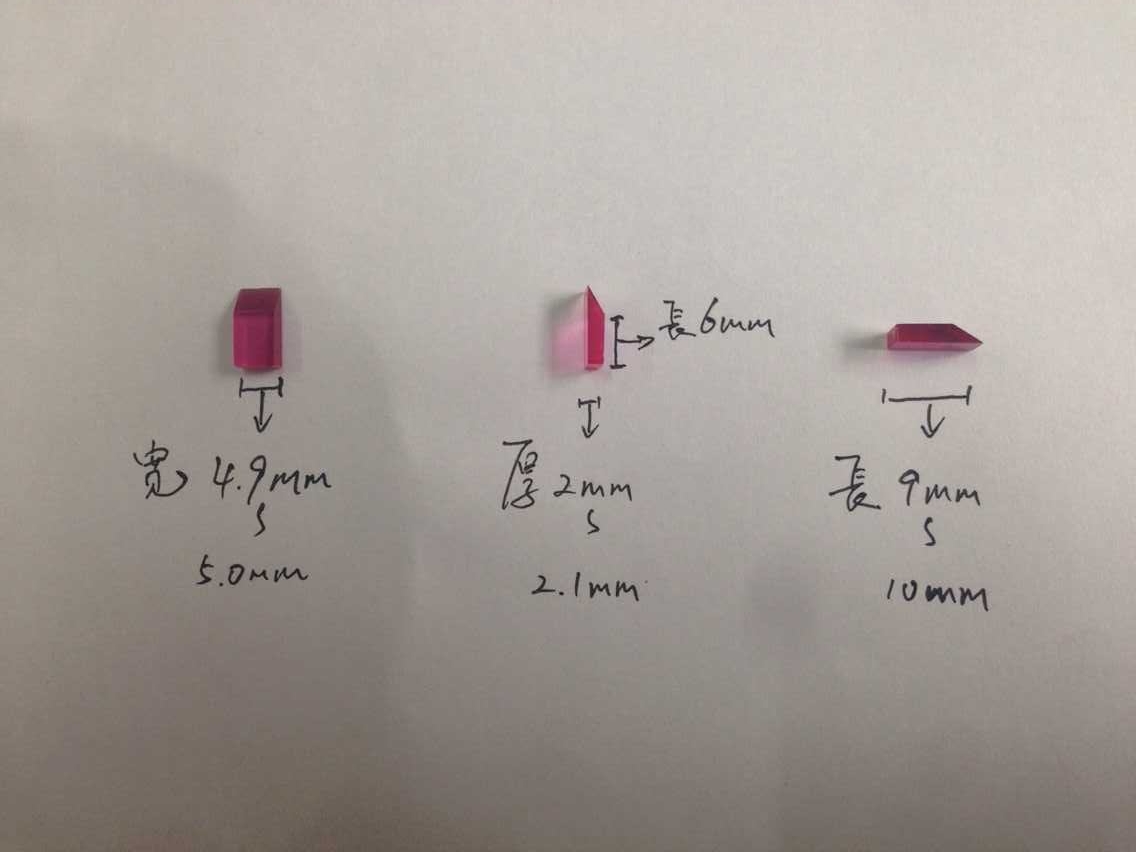 長6mm
宽 4.9mm
S
5.0mm
厚 2mm
S
2.1mm
長 9mm
S
10mm